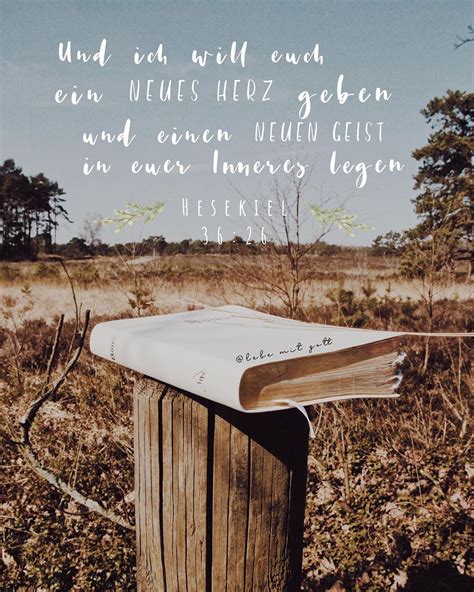 Und ich will euch
ein NEUES HERZ geben
und einen NEUEN GEIST
in euer Inneres legen
HESEKIEL
36:26
@lebe mit gott